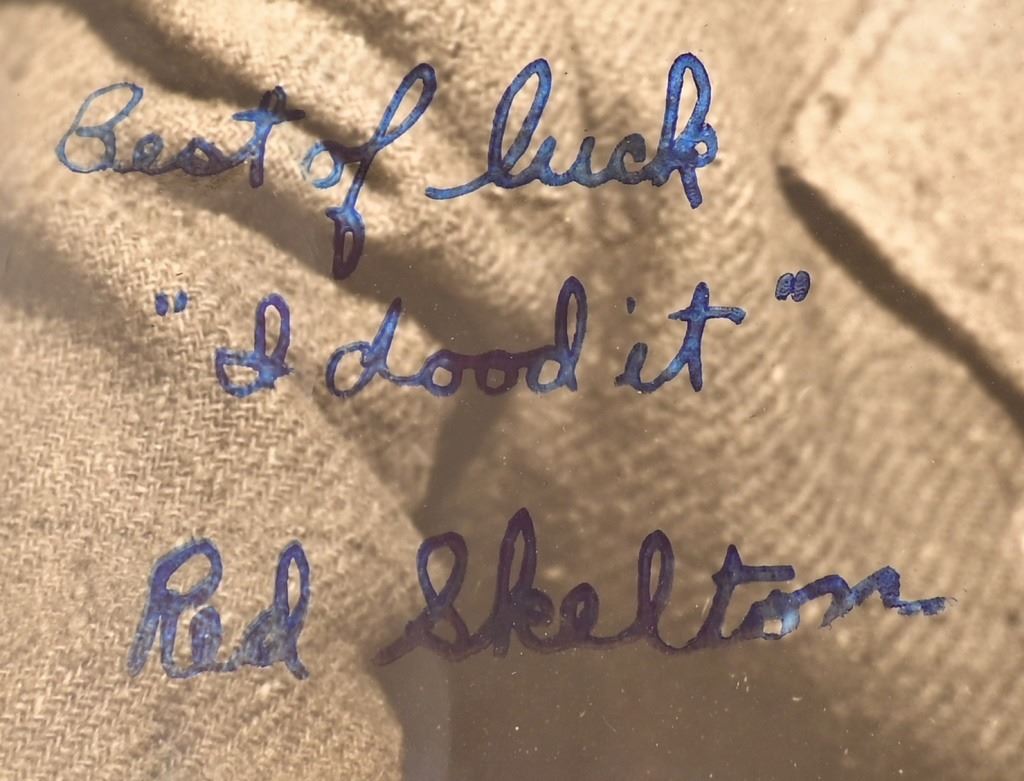 Best of luck
"I dood it"
Red Skelton